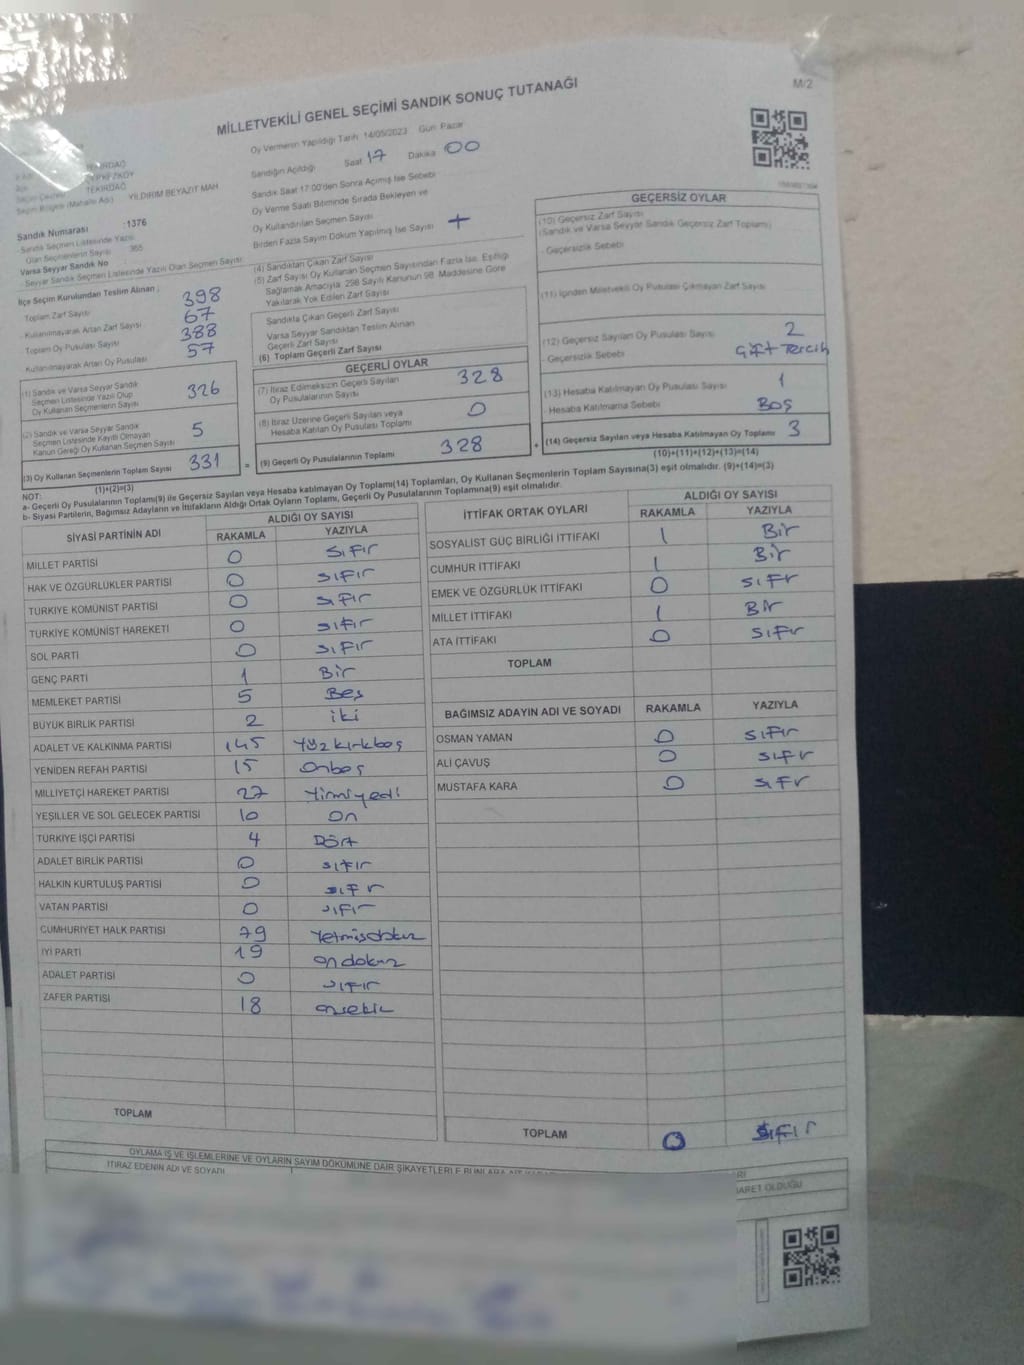 M/2
MİLLETVEKİLİ GENEL SEÇİMİ SANDIK SONUÇ TUTANAĞI
Oy Vermenin Yapıldığı Tarih 14/05/2023 Gün Pazar
Sandığın Açıldığı Saat 17 Dakika 00
Sandık Saat 17:00'den Sonra Açılmış İse Sebebi
Oy Verme Saati Bitiminde Sırada Bekleyen ve
Oy Kullandırılan Seçmen Sayısı
Birden Fazla Sayım Döküm Yapılmış İse Sayısı +
TEKİRDAĞ
YILDIRIM BEYAZIT MAH
Sandık Numarası :1376
- Sandık Seçmen Listesinde Yazılı
Olan Seçmenlerin Sayısı 365
Varsa Seyyar Sandık No
- Seyyar Sandık Seçmen Listesinde Yazılı Olan Seçmen Sayısı
İlçe Seçim Kurulundan Teslim Alınan;
Toplam Zarf Sayısı 398
- Kullanılmayarak Artan Zarf Sayısı 67
- Toplam Oy Pusulası Sayısı 388
- Kullanılmayarak Artan Oy Pusulası 57
(1) Sandık ve Varsa Seyyar Sandık
Seçmen Listesinde Yazılı Olup
Oy Kullanan Seçmenlerin Sayısı 326
(2) Sandık ve Varsa Seyyar Sandık
Seçmen Listesinde Kayıtlı Olmayan
Kanun Gereği Oy Kullanan Seçmen Sayısı 5
(3) Oy Kullanan Seçmenlerin Toplam Sayısı 331 =
(1)+(2)=(3)
(4) Sandıktan Çıkan Zarf Sayısı
(5) Zarf Sayısı Oy Kullanan Seçmen Sayısından Fazla İse, Eşitliği
Sağlamak Amacıyla, 298 Sayılı Kanunun 98. Maddesine Göre
Yakılarak Yok Edilen Zarf Sayısı
Sandıkla Çıkan Geçerli Zarf Sayısı
Varsa Seyyar Sandıktan Teslim Alınan
Geçerli Zarf Sayısı
(6) Toplam Geçerli Zarf Sayısı
GEÇERLİ OYLAR
(7) İtiraz Edilmeksizin Geçerli Sayılan
Oy Pusulalarının Sayısı 328
(8) İtiraz Üzerine Geçerli Sayılan veya
Hesaba Katılan Oy Pusulası Toplamı 0
(9) Geçerli Oy Pusulalarının Toplamı 328 +
GEÇERSİZ OYLAR
(10) Geçersiz Zarf Sayısı
(Sandık ve Varsa Seyyar Sandık Geçersiz Zarf Toplamı)
- Geçersizlik Sebebi
(11) İçinden Milletvekili Oy Pusulası Çıkmayan Zarf Sayısı
(12) Geçersiz Sayılan Oy Pusulası Sayısı 2
- Geçersizlik Sebebi Çift Tercih
(13) Hesaba Katılmayan Oy Pusulası Sayısı 1
- Hesaba Katılmama Sebebi Boş
(14) Geçersiz Sayılan veya Hesaba Katılmayan Oy Toplamı 3
(10)+(11)+(12)+(13)=(14)
NOT:
a- Geçerli Oy Pusulalarının Toplamı(9) ile Geçersiz Sayılan veya Hesaba katılmayan Oy Toplamı(14) Toplamları, Oy Kullanan Seçmenlerin Toplam Sayısına(3) eşit olmalıdır. (9)+(14)=(3)
b- Siyasi Partilerin, Bağımsız Adayların ve İttifakların Aldığı Ortak Oyların Toplamı, Geçerli Oy Pusulalarının Toplamına(9) eşit olmalıdır.
SİYASİ PARTİNİN ADI ALDIĞI OY SAYISI
RAKAMLA YAZIYLA
MİLLET PARTİSİ 0 Sıfır
HAK VE ÖZGÜRLÜKLER PARTİSİ 0 sıfır
TÜRKİYE KOMÜNİST PARTİSİ 0 sıfır
TÜRKİYE KOMÜNİST HAREKETİ 0 sıfır
SOL PARTİ 0 sıfır
GENÇ PARTİ 1 Bir
MEMLEKET PARTİSİ 5 Beş
BÜYÜK BİRLİK PARTİSİ 2 iki
ADALET VE KALKINMA PARTİSİ 145 Yüzkırkbeş
YENİDEN REFAH PARTİSİ 15 Onbeş
MİLLİYETÇİ HAREKET PARTİSİ 27 Yirmiyedi
YEŞİLLER VE SOL GELECEK PARTİSİ 10 On
TÜRKİYE İŞÇİ PARTİSİ 4 Dört
ADALET BİRLİK PARTİSİ 0 sıfır
HALKIN KURTULUŞ PARTİSİ 0 sıfır
VATAN PARTİSİ 0 sıfır
CUMHURİYET HALK PARTİSİ 79 Yetmişdokuz
İYİ PARTİ 19 ondokuz
ADALET PARTİSİ 0 sıfır
ZAFER PARTİSİ 18 onsekiz
TOPLAM
İTTİFAK ORTAK OYLARI ALDIĞI OY SAYISI
RAKAMLA YAZIYLA
SOSYALİST GÜÇ BİRLİĞİ İTTİFAKI 1 Bir
CUMHUR İTTİFAKI 1 Bir
EMEK VE ÖZGÜRLÜK İTTİFAKI 0 sıfır
MİLLET İTTİFAKI 1 Bir
ATA İTTİFAKI 0 sıfır
TOPLAM
BAĞIMSIZ ADAYIN ADI VE SOYADI RAKAMLA YAZIYLA
OSMAN YAMAN 0 sıfır
ALİ ÇAVUŞ 0 sıfır
MUSTAFA KARA 0 sıfır
TOPLAM 0 sıfır
OYLAMA İŞ VE İŞLEMLERİNE VE OYLARIN SAYIM DÖKÜMÜNE DAİR ŞİKAYETLER
İTİRAZ EDENİN ADI VE SOYADI